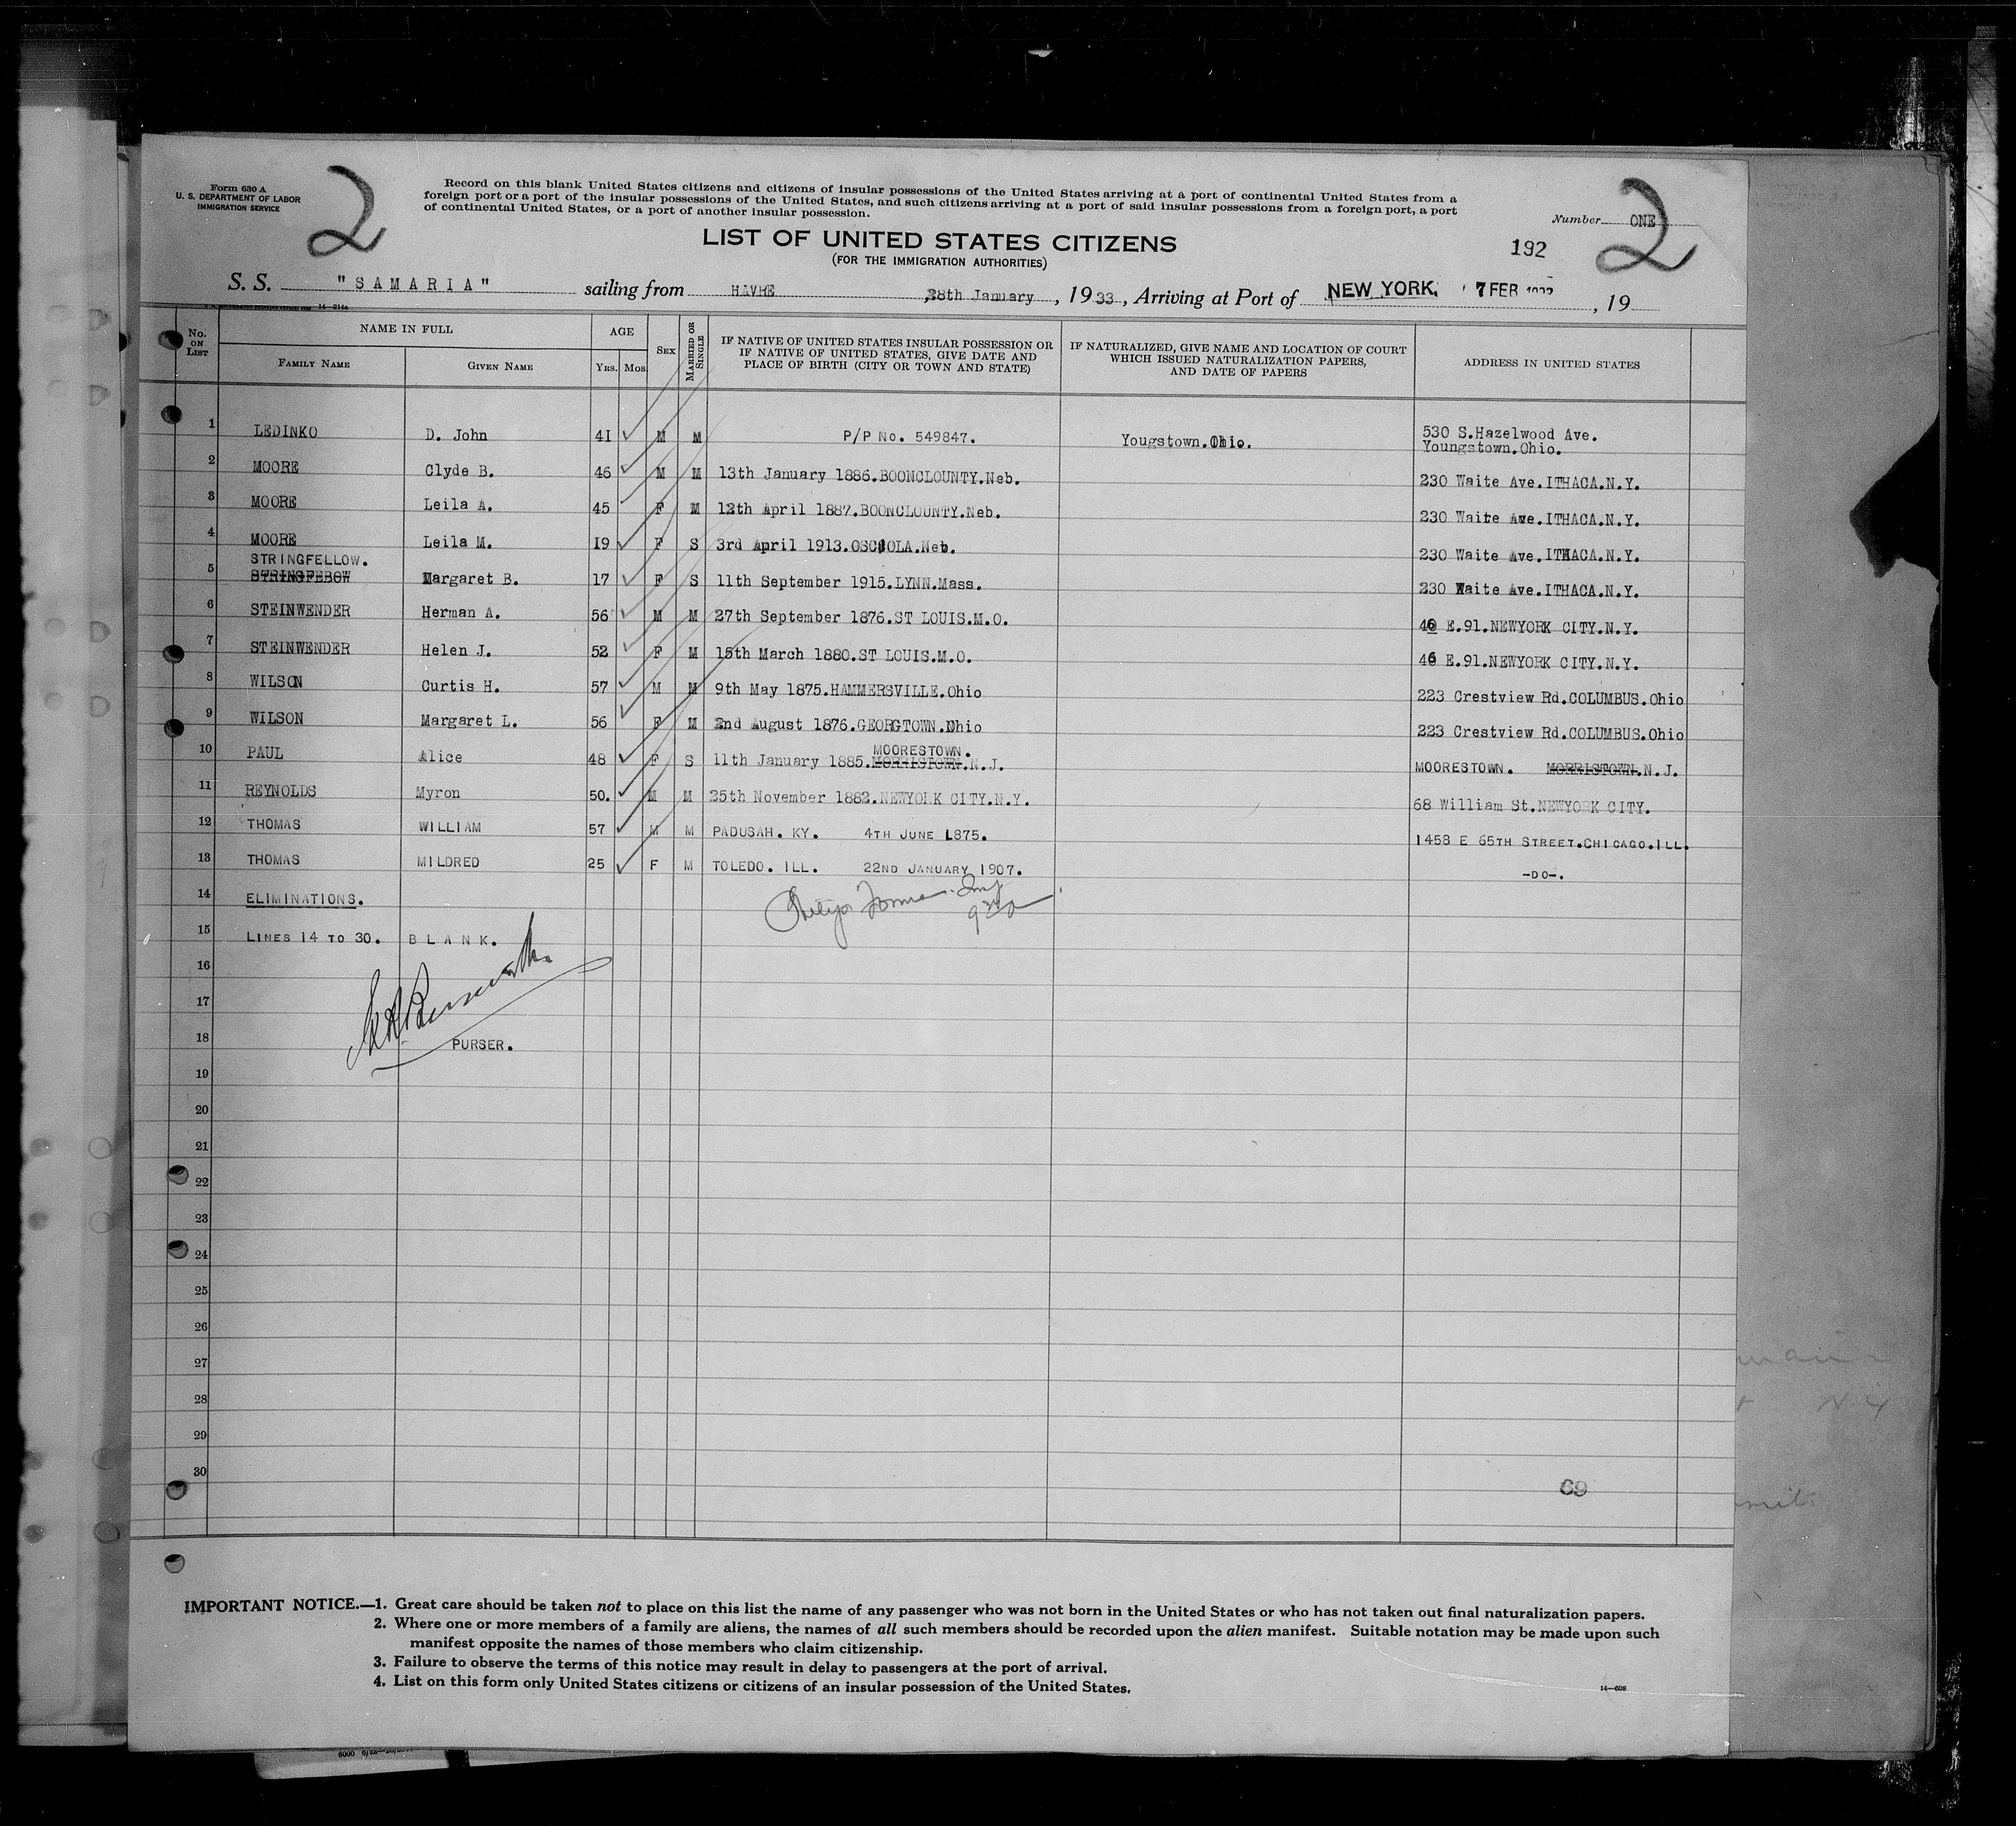 Form 630 A
U. S. DEPARTMENT OF LABOR
IMMIGRATION SERVICE
2
Record on this blank United States citizens and citizens of insular possessions of the United States arriving at a port of continental United States from a
foreign port or a port of the insular possessions of the United States, and such citizens arriving at a port of said insular possessions from a foreign port, a port
of continental United States, or a port of another insular possession.
Number ONE
2
LIST OF UNITED STATES CITIZENS
(FOR THE IMMIGRATION AUTHORITIES)
192
S. S. "SAMARIA" sailing from HAVRE, 28th January, 1933, Arriving at Port of NEW YORK, 7 FEB, 19
No. ON LIST
NAME IN FULL
FAMILY NAME
GIVEN NAME
AGE
YRS. MOS
SEX
MARRIED OR SINGLE
IF NATIVE OF UNITED STATES INSULAR POSSESSION OR
IF NATIVE OF UNITED STATES, GIVE DATE AND
PLACE OF BIRTH (CITY OR TOWN AND STATE)
IF NATURALIZED, GIVE NAME AND LOCATION OF COURT
WHICH ISSUED NATURALIZATION PAPERS,
AND DATE OF PAPERS
ADDRESS IN UNITED STATES
1 LEDINKO D. John 41 M M P/P No. 549847. Yougstown.Ohio. 530 S.Hazelwood Ave.
Youngstown.Ohio.
2 MOORE Clyde B. 46 M M 13th January 1886.BOONCLOUNTY.Neb. 230 Waite Ave.ITHACA.N.Y.
3 MOORE Leila A. 45 F M 12th April 1887.BOONCLOUNTY.Neb. 230 Waite Ave.ITHACA.N.Y.
4 MOORE Leila M. 19 F S 3rd April 1913.OSCIOLA.Neb. 230 Waite Ave.ITHACA.N.Y.
STRINGFELLOW.
5 STRINGFEBOW Margaret B. 17 F S 11th September 1915.LYNN.Mass. 230 Waite Ave.ITHACA.N.Y.
6 STEINWENDER Herman A. 56 M M 27th September 1876.ST LOUIS.M.O. 46 E.91.NEWYORK CITY.N.Y.
7 STEINWENDER Helen J. 52 F M 15th March 1880.ST LOUIS.M.O. 46 E.91.NEWYORK CITY.N.Y.
8 WILSON Curtis H. 57 M M 9th May 1875.HAMMERSVILLE.Ohio 223 Crestview Rd.COLUMBUS.Ohio
9 WILSON Margaret L. 56 F M 2nd August 1876.GEORGTOWN.Ohio 223 Crestview Rd.COLUMBUS.Ohio
MOORESTOWN.
10 PAUL Alice 48 F S 11th January 1885.MORRISTOWN.N.J. MOORESTOWN. MORRISTOWN.N.J.
11 REYNOLDS Myron 50. M M 25th November 1882.NEWYORK CITY.N.Y. 68 William St.NEWYORK CITY.
12 THOMAS WILLIAM 57 M M PADUSAH. KY. 4TH JUNE 1875. 1458 E 65TH STREET.CHICAGO.ILL.
13 THOMAS MILDRED 25 F M TOLEDO. ILL. 22ND JANUARY 1907. -DO-.
14 ELIMINATIONS.
15 LINES 14 TO 30. BLANK.
16
17
18 PURSER.
19
20
21
22
23
24
25
26
27
28
29
30
69
IMPORTANT NOTICE.—1. Great care should be taken not to place on this list the name of any passenger who was not born in the United States or who has not taken out final naturalization papers.
2. Where one or more members of a family are aliens, the names of all such members should be recorded upon the alien manifest. Suitable notation may be made upon such
manifest opposite the names of those members who claim citizenship.
3. Failure to observe the terms of this notice may result in delay to passengers at the port of arrival.
4. List on this form only United States citizens or citizens of an insular possession of the United States.
14—608